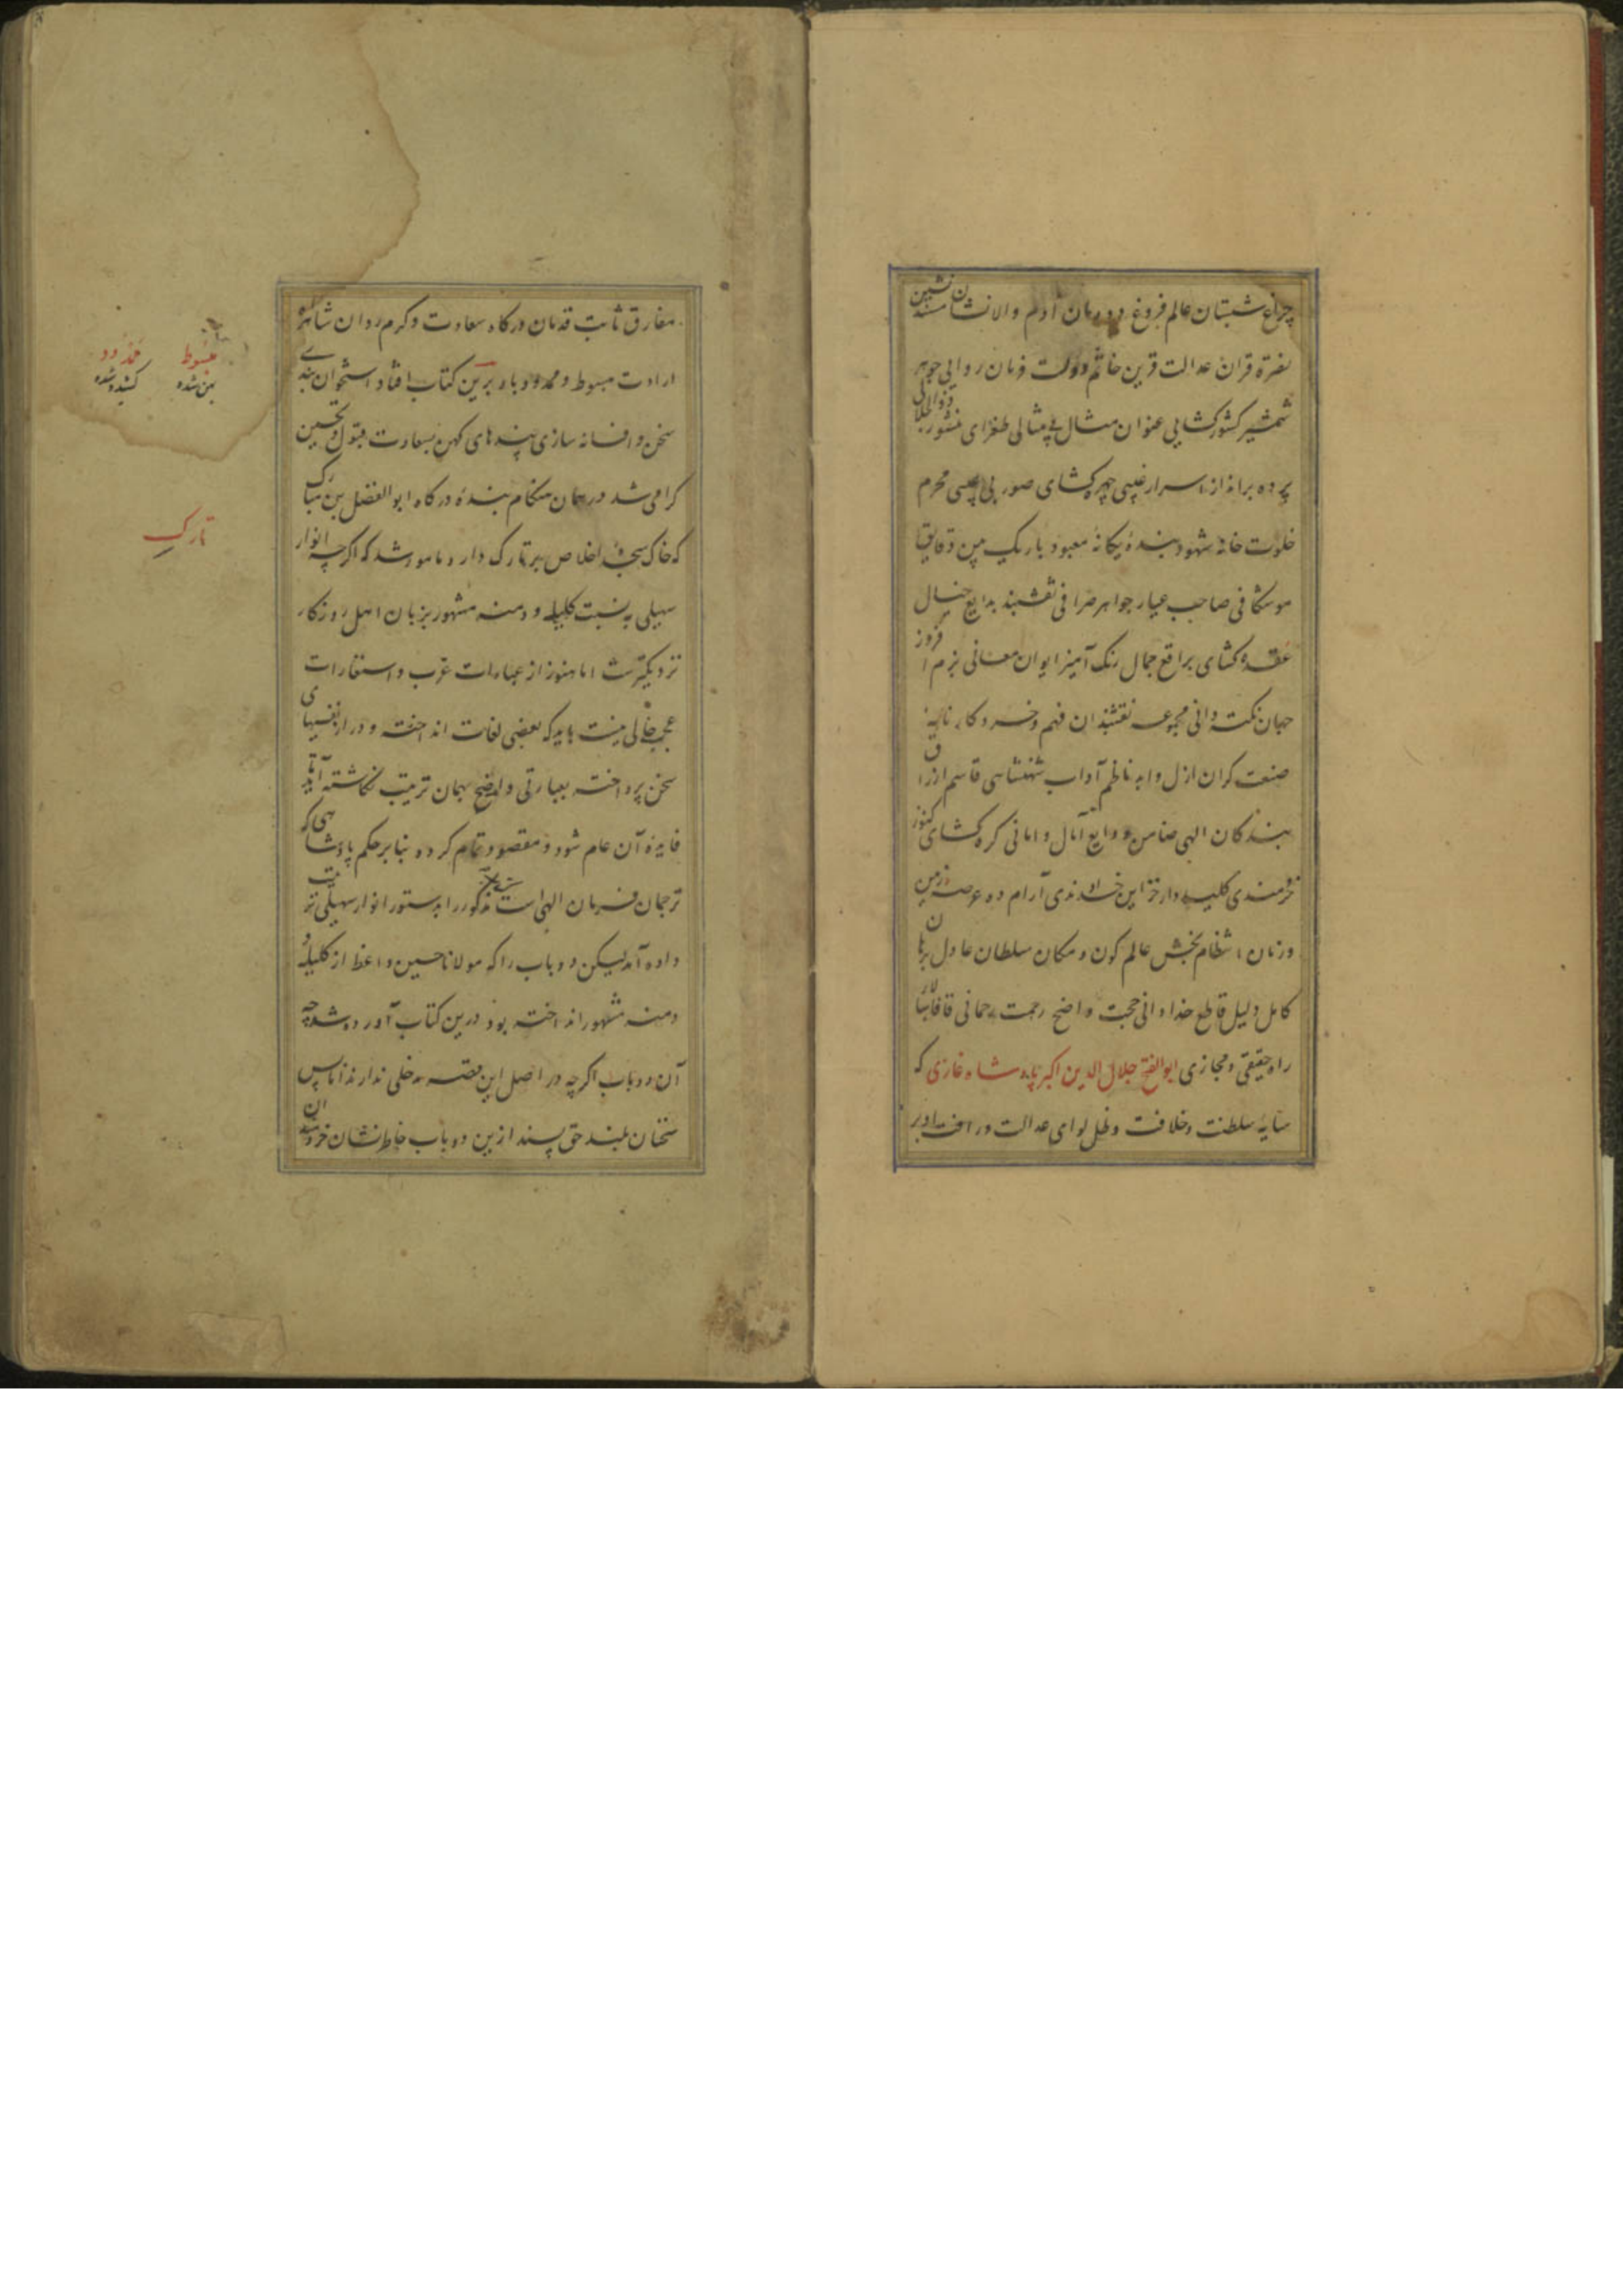 چراغ شبستان عالم فروغ دودمان آدم والانشان مسند نشین
نصرة قران عدالت قرین خاتم دولت فرمان روایی جوهر
شمشیر کشورکشایی عنوان مثال بی مثالی طغرای منشور ذوالجلالی
پرده برانداز اسرار غیبی چهره کشای صور بی عیبی محرم
خلوت خانهٔ شهود بندهٔ یکانهٔ معبود باریک بین دقایق
موشکافی صاحب عیار جواهر صرافی نقشبند بدایع خیال
عقده کشای براقع جمال رنک آمیز ایوان معانی بزم افروز
جهان نکته دانی مجموعه نقشبندان فهم و خرد کارنامهٔ
صنعت کران ازل و ابد ناظم آداب شهنشاهی قاسم ارزاق
بندکان الهی ضامن ودایع آمال و امانی کره کشای کنوز
خردمندی کلید دار خزاین خداوندی آرام ده عرصه زمین
و زمان انتظام بخش عالم کون و مکان سلطان عادل برهان
کامل دلیل قاطع خدادانی حجت واضح رحمت رحمانی قافله سالار
راه حقیقی و مجازی ابوالفتح جلال الدین اکبر پادشاه غازی که
سایهٔ سلطنت و خلافت و ظل لوای عدالت و رافت او بر
مفارق ثابت قدمان درکاه سعادت و کرم روان شاهراه
ارادت مبسوط و ممدود باد برین کتاب افتاد استخوان بندی
سخن و افسانه سازی پندهای کهن بسعادت قبول و تحسین
کرامی شد در همان هنکام بندهٔ درکاه ابوالفضل بن مبارک
که خاک سجدهٔ اخلاص بر تارک دارد مامور شد که اکرچه انوار
سهیلی به نسبت کلیله و دمنه مشهور بزبان اهل روزکار
نزدیکترست اما هنوز از عبارات عرب و استعارات
عجم خالی نیست باید که بعضی لغات انداخته و دراز نفسیهای
سخن پرداخته بعبارتی واضح بهمان ترتیب نکاشته آید تا
فایدهٔ آن عام شود و مقصود تمام کردد بنابر حکم پادشاهی که
ترجمان فرمان الهی است مذکور را بدستور انوار سهیلی ترتیب
داده آمد لیکن دو باب را که مولانا حسین واعظ از کلیله و
دمنه مشهور انداخته بود درین کتاب آورده شد چه
آن دو باب اکرچه در اصل این قصه مدخلی ندارند اما بس
سخنان بلند حق پسند ازین دو باب خاطرنشان خردمندان
مبسوط
پهن شده
ممدود
کشیده شده
تارک